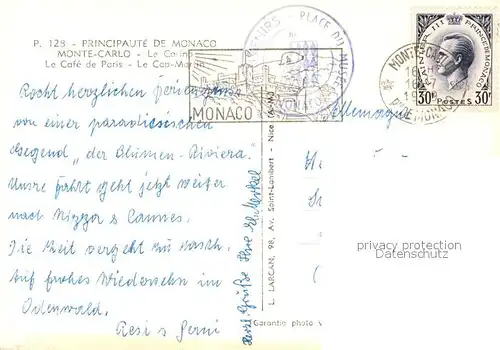 P. 128 - PRINCIPAUTÉ DE MONACO
MONTE-CARLO - Le Casino
Le Café de Paris - Le Cap-Martin
MUSÉE
PLACE DU
MONACO
MONTE-CARLO
16
Pté DE MONACO
RAINIER III PRINCE DE MONACO
30F POSTES 30F
Allemagne
Recht herzlichen Feriengruss
von einer paradiesischen
Gegend „der Blumen-Riviera".
Unsre Fahrt geht jetzt weiter
nach Nizza & Cannes.
Die Zeit vergeht zu rasch.
Auf frohes Wiedersehn im
Odenwald.
Resi & Gerni
Herzl. Grüße Ihre
L. LARCAN, 98, Av. Saint-Lambert - Nice (A.-M.)
Garantie photo v
privacy protection
Datenschutz